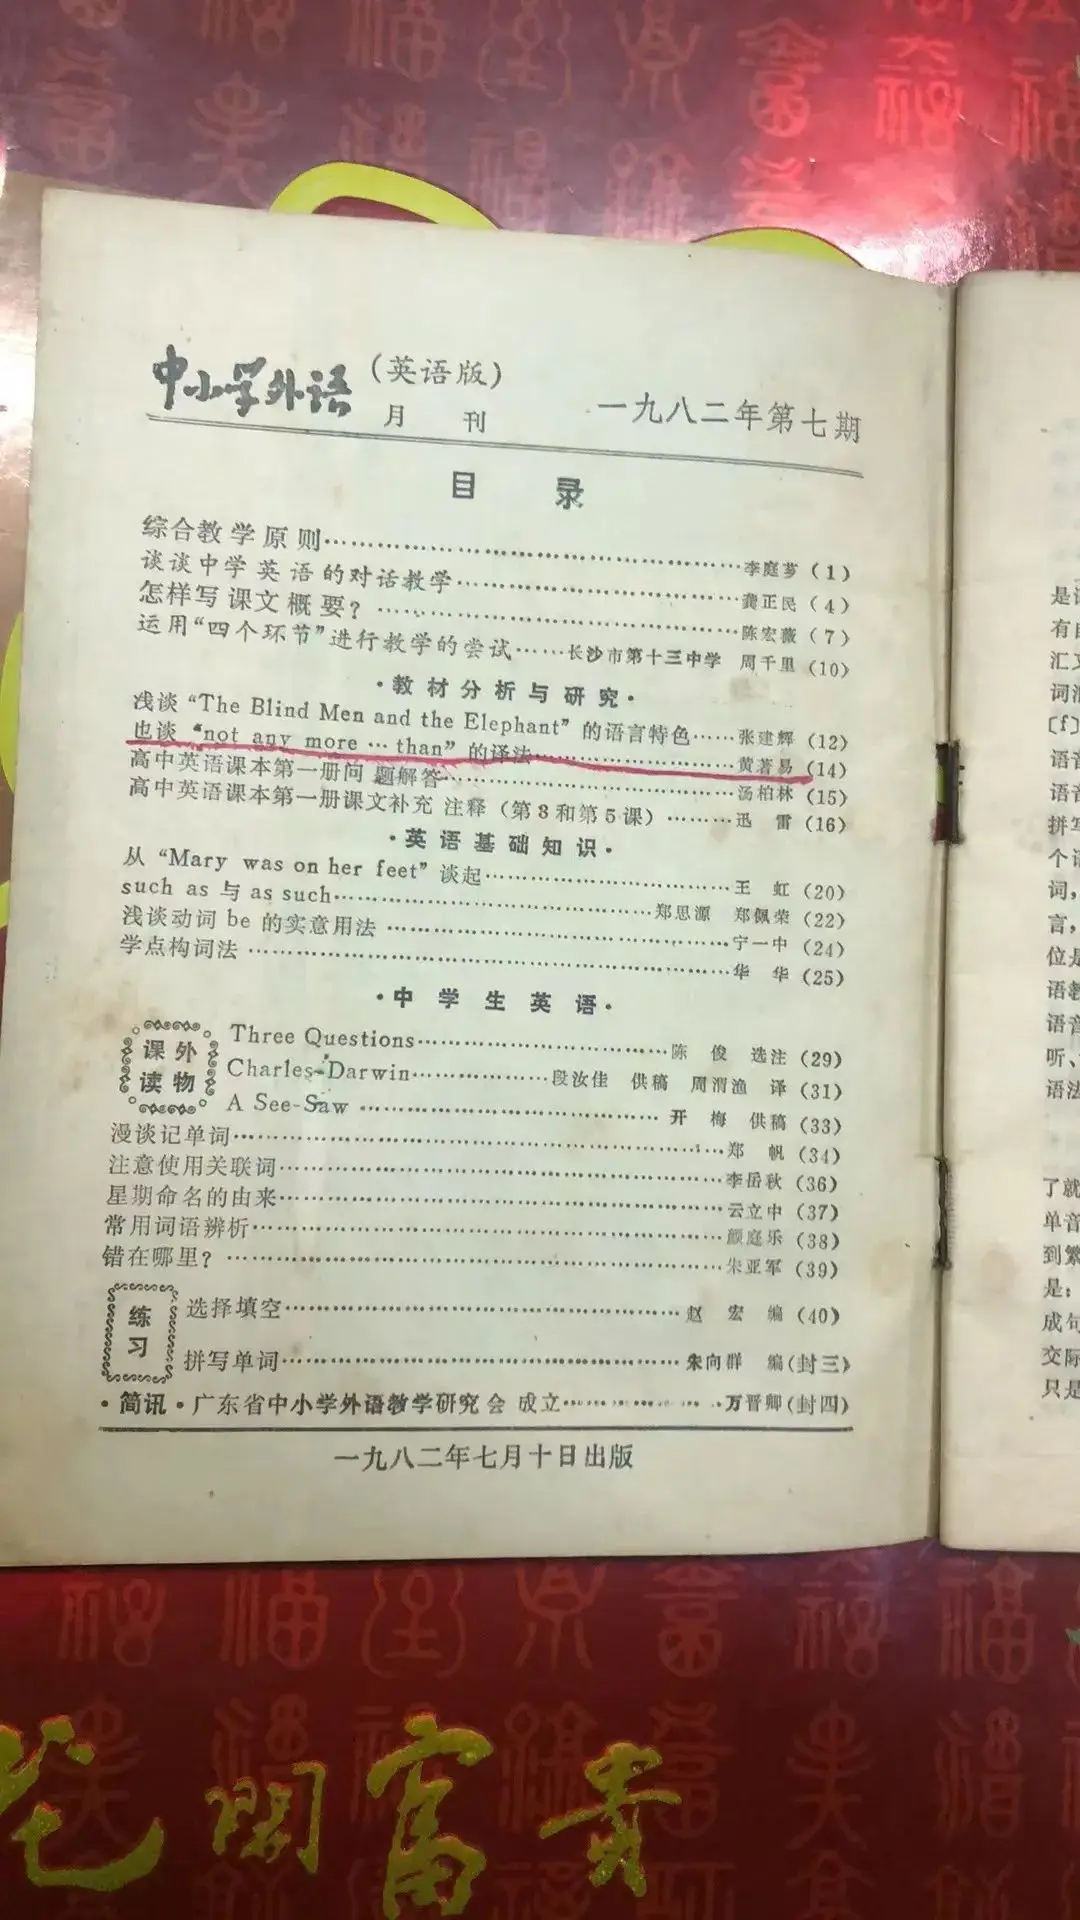 中小学外语（英语版）
月 刊
一九八二年第七期
目 录
综合教学原则……李庭芗（1）
谈谈中学英语的对话教学……龚正民（4）
怎样写课文概要？……陈宏薇（7）
运用“四个环节”进行教学的尝试……长沙市第十三中学 周千里（10）
·教材分析与研究·
浅谈“The Blind Men and the Elephant”的语言特色……张建辉（12）
也谈“not any more … than”的译法……黄著易（14）
高中英语课本第一册问题解答……汤柏林（15）
高中英语课本第一册课文补充注释（第3和第5课）……迅 雷（16）
·英语基础知识·
从“Mary was on her feet”谈起……王 虹（20）
such as 与 as such……郑思源 郑佩荣（22）
浅谈动词 be 的实意用法……宁一中（24）
学点构词法……华 华（25）
·中学生英语·
课外
读物
Three Questions……陈 俊 选注（29）
Charles Darwin……段汝佳 供稿 周渭渔 译（31）
A See-Saw……开 梅 供稿（33）
漫谈记单词……郑 帆（34）
注意使用关联词……李岳秋（36）
星期命名的由来……云立中（37）
常用词语辨析……颜庭乐（38）
错在哪里？……朱亚军（39）
练
习
选择填空……赵 宏 编（40）
拼写单词……朱向群 编（封三）
·简讯·广东省中小学外语教学研究会成立……万晋卿（封四）
一九八二年七月十日出版
是
有
汇
词
〔f〕
语音
语音
拼
个
词，
言，
位是
语教
语音
听、
语法
了就
单音
到繁
是：
成句
交际
只是
花開富貴